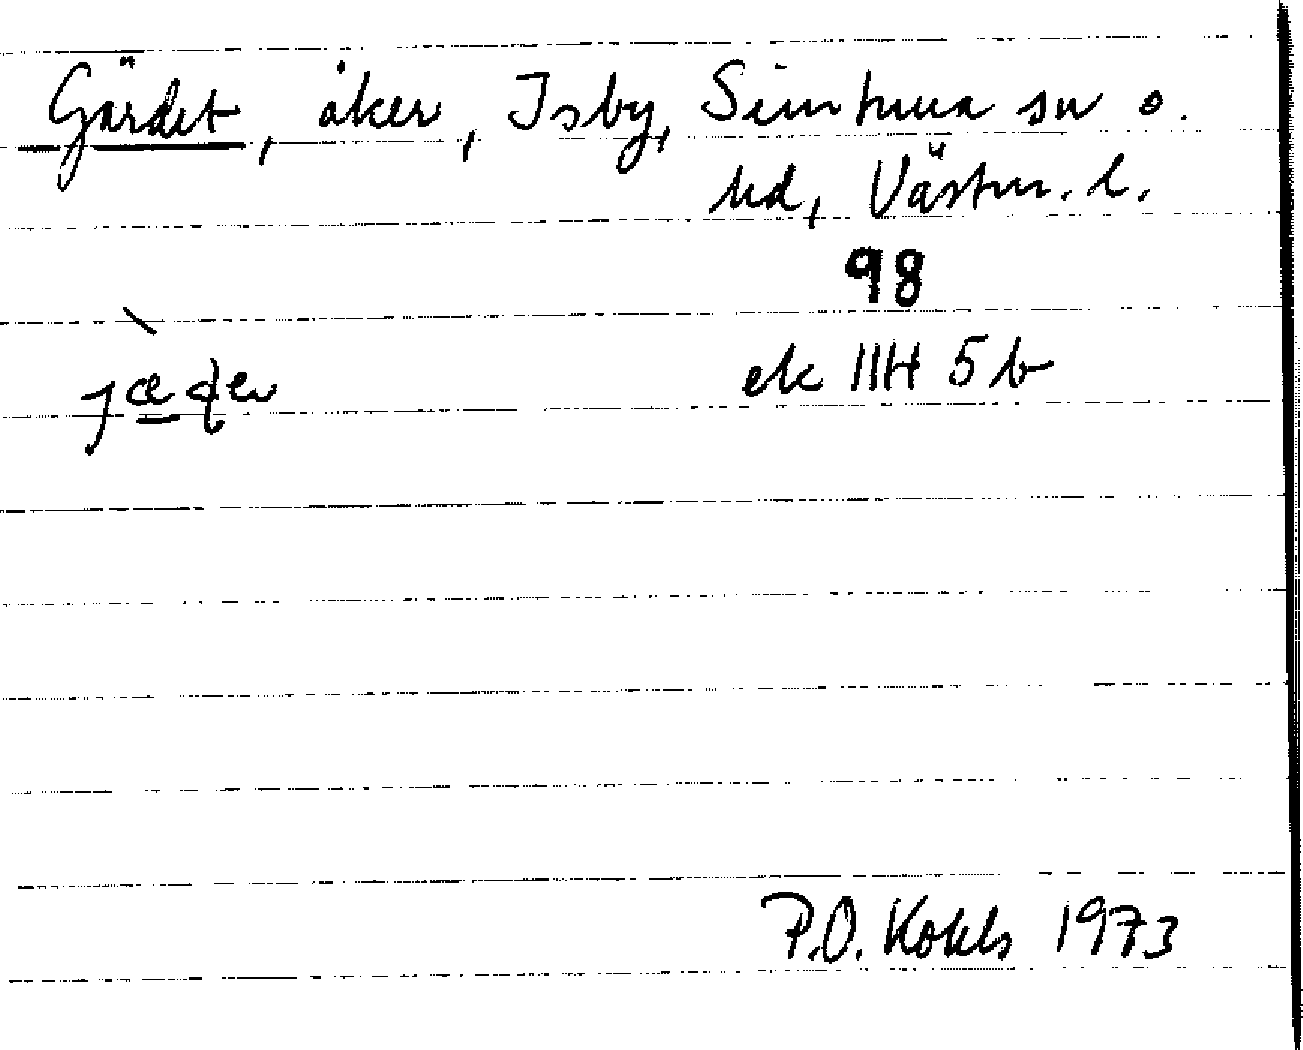 Gärdet, åker, Isby, Simtuna sn o.
hd, Västm. l.
98
ek 11H 5b
P.O. Kokls 1973